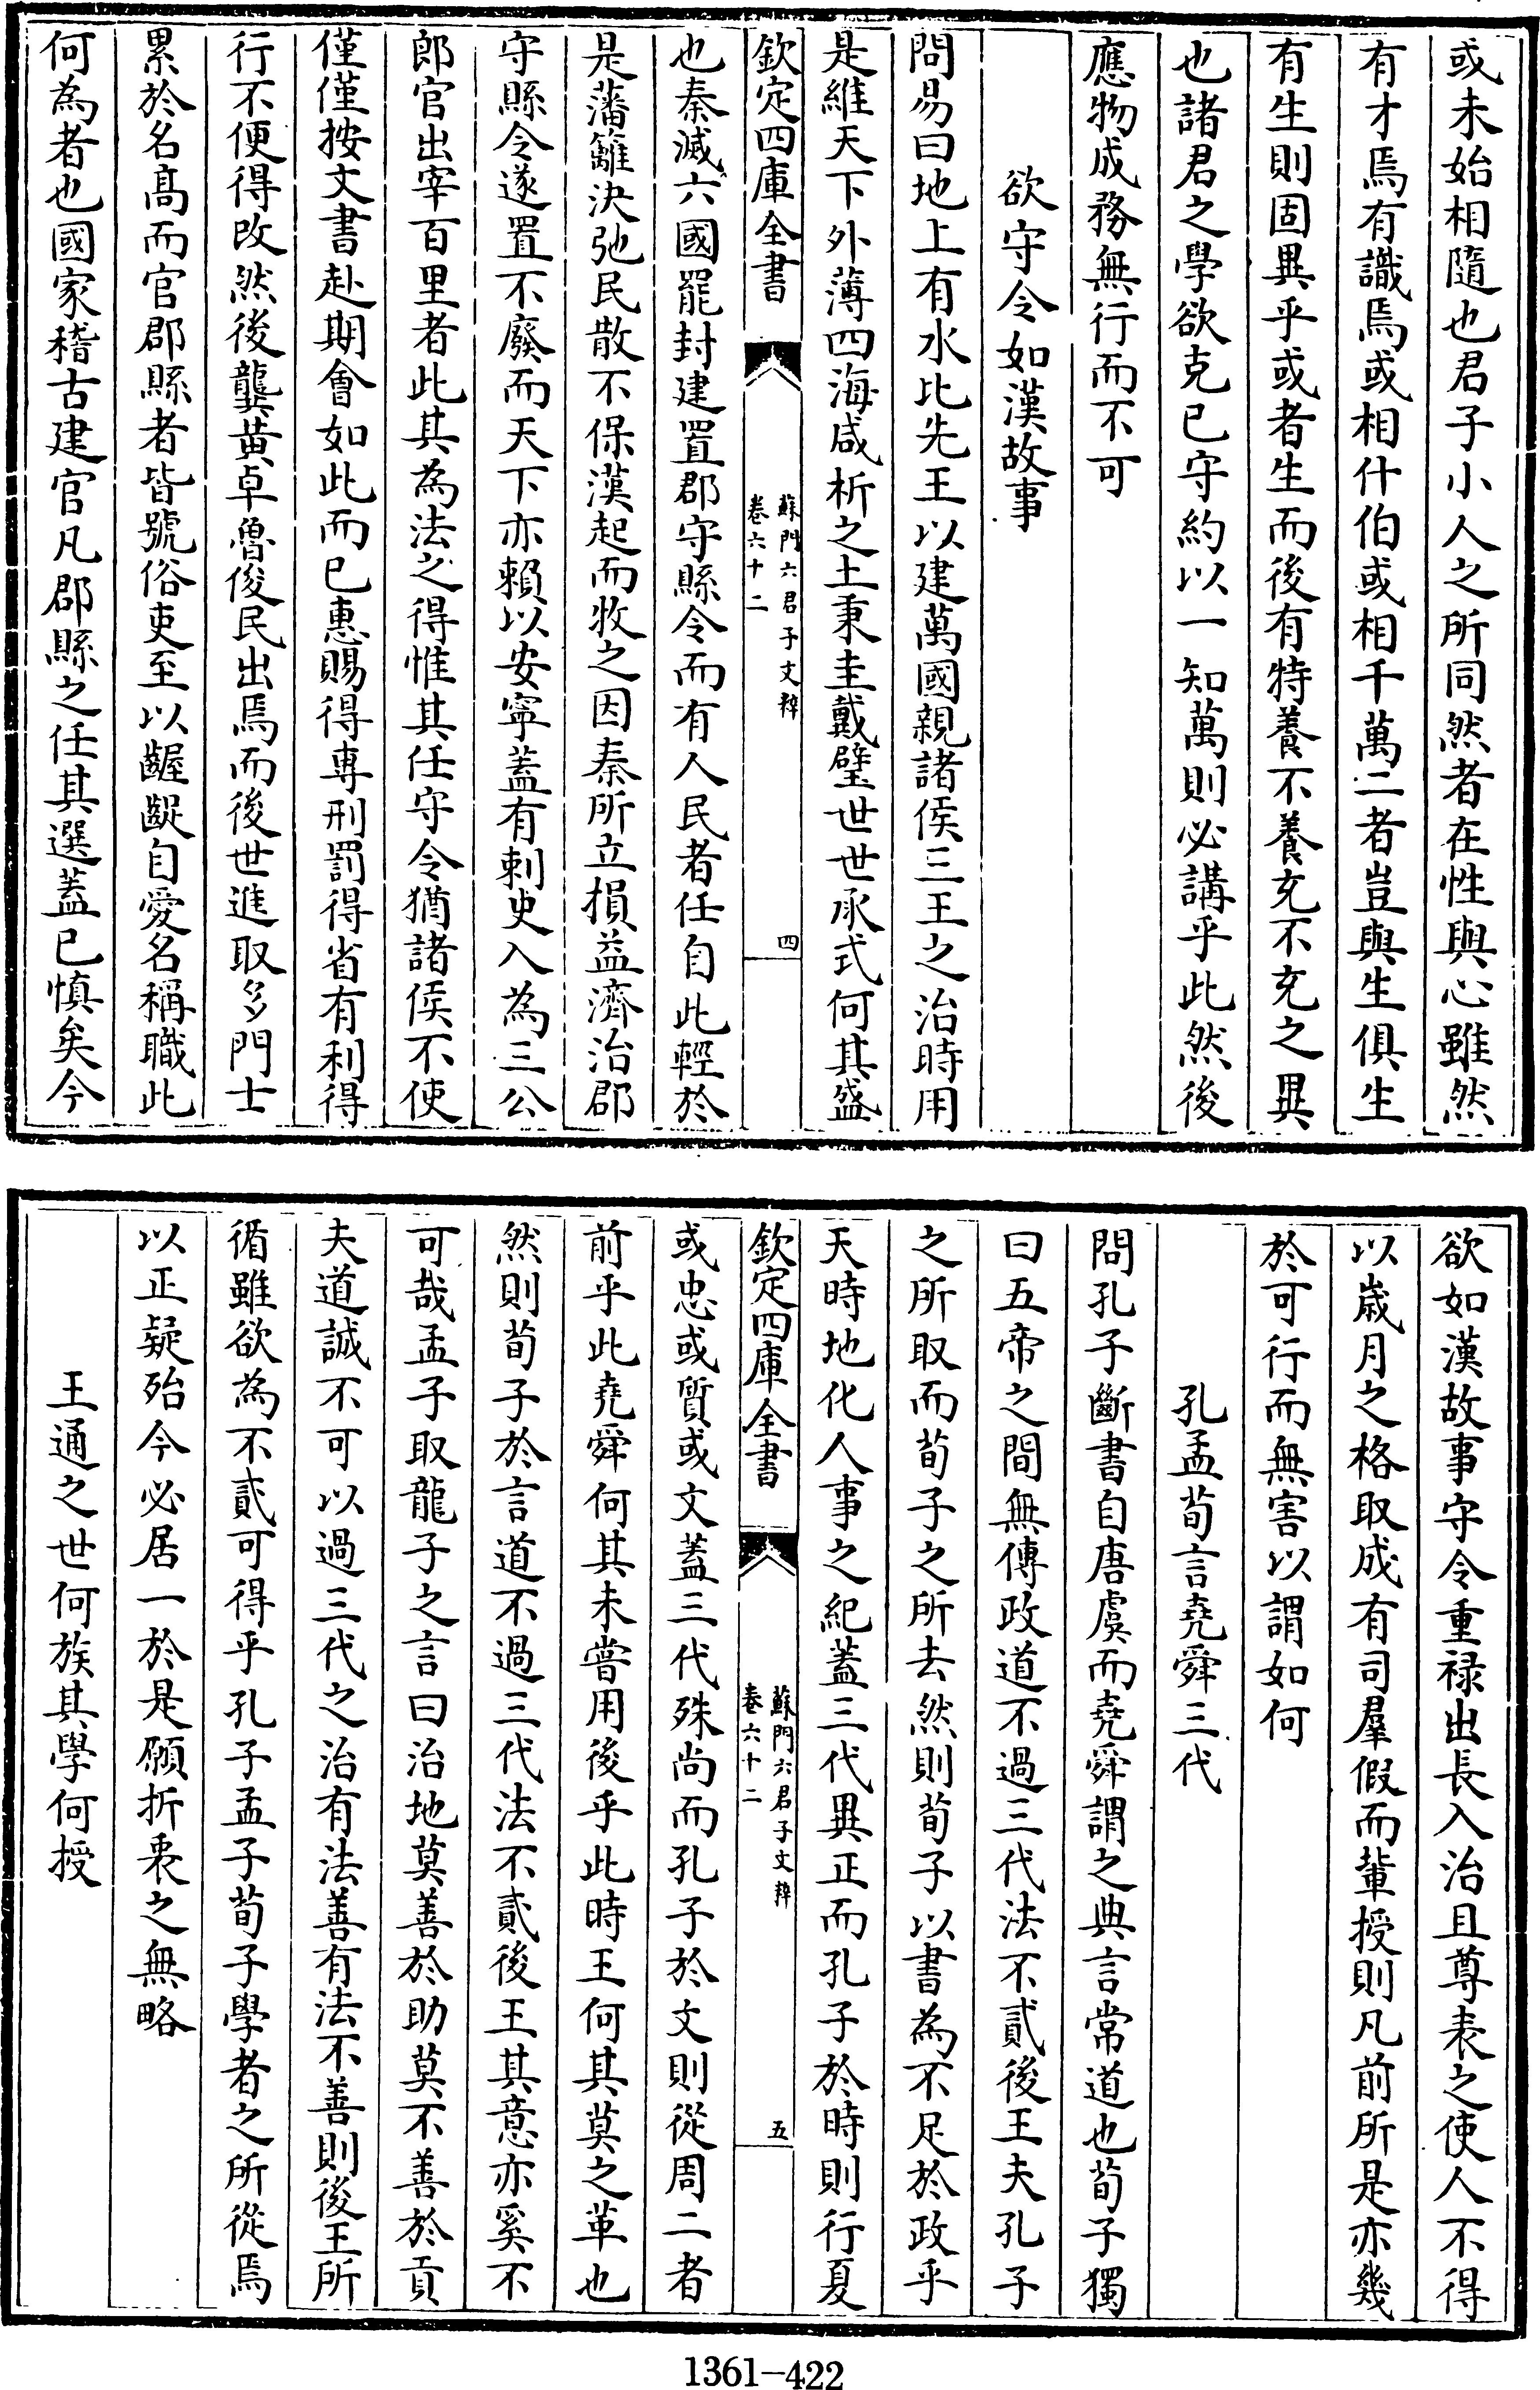 或未始相隨也君子小人之所同然者在性與心雖然
有才焉有識焉或相什伯或相千萬二者豈與生俱生
有生則固異乎或者生而後有特養不養充不充之異
也諸君之學欲克已守約以一知萬則必講乎此然後
應物成務無行而不可
欲守令如漢故事
問易曰地上有水比先王以建萬國親諸侯三王之治時用
是維天下外薄四海咸析之土秉圭戴璧世世承式何其盛
欽定四庫全書
蘇門六君子文粹
卷六十二
四
也秦滅六國罷封建置郡守縣令而有人民者任自此輕於
是藩籬決弛民散不保漢起而牧之因秦所立損益濟治郡
守縣令遂置不廢而天下亦賴以安寧蓋有刺史入為三公
郎官出宰百里者此其為法之得惟其任守令猶諸侯不使
僅僅按文書赴期會如此而已惠賜得專刑罰得省有利得
行不便得改然後龔黃卓魯俊民出焉而後世進取多門士
累於名高而官郡縣者皆號俗吏至以齷齪自愛名稱職此
何為者也國家稽古建官凡郡縣之任其選蓋已慎矣今
欲如漢故事守令重祿出長入治且尊表之使人不得
以歲月之格取成有司羣假而輩授則凡前所是亦幾
於可行而無害以謂如何
孔孟荀言堯舜三代
問孔子斷書自唐虞而堯舜謂之典言常道也荀子獨
曰五帝之間無傳政道不過三代法不貳後王夫孔子
之所取而荀子之所去然則荀子以書為不足於政乎
天時地化人事之紀蓋三代異正而孔子於時則行夏
欽定四庫全書
蘇門六君子文粹
卷六十二
五
或忠或質或文蓋三代殊尚而孔子於文則從周二者
前乎此堯舜何其未嘗用後乎此時王何其莫之革也
然則荀子於言道不過三代法不貳後王其意亦奚不
可哉孟子取龍子之言曰治地莫善於助莫不善於貢
夫道誠不可以過三代之治有法善有法不善則後王所
循雖欲為不貳可得乎孔子孟子荀子學者之所從焉
以正疑殆今必居一於是願折衷之無略
王通之世何族其學何授
1361-422